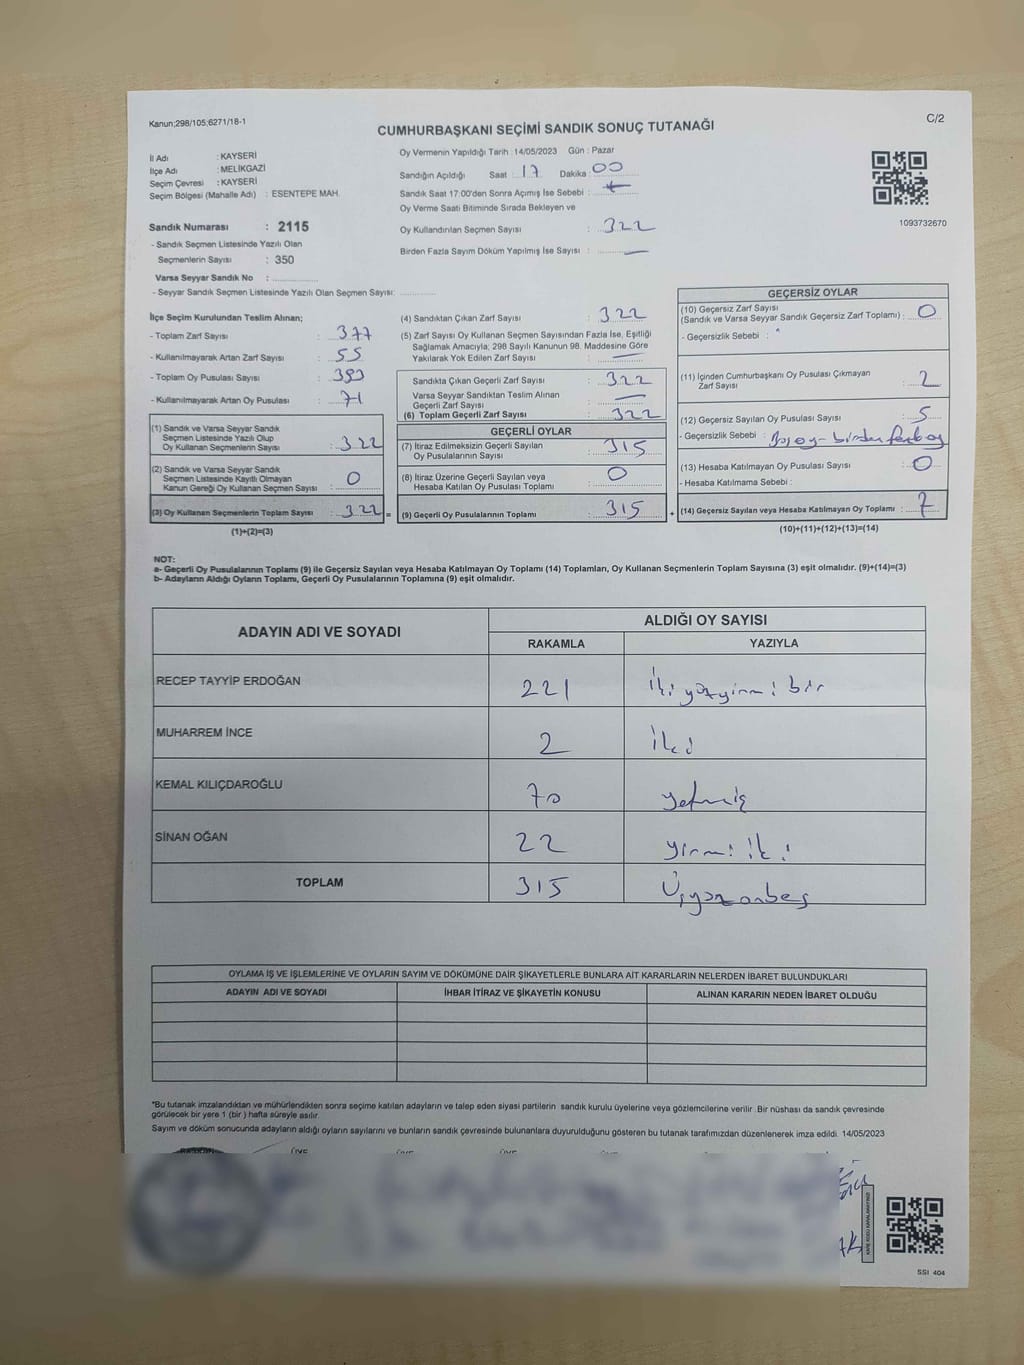 Kanun;298/105;6271/18-1
C/2
CUMHURBAŞKANI SEÇİMİ SANDIK SONUÇ TUTANAĞI
İl Adı : KAYSERİ
İlçe Adı : MELİKGAZİ
Seçim Çevresi : KAYSERİ
Seçim Bölgesi (Mahalle Adı) : ESENTEPE MAH.
Sandık Numarası : 2115
- Sandık Seçmen Listesinde Yazılı Olan
Seçmenlerin Sayısı : 350
Varsa Seyyar Sandık No :
- Seyyar Sandık Seçmen Listesinde Yazılı Olan Seçmen Sayısı:
Oy Vermenin Yapıldığı Tarih : 14/05/2023 Gün : Pazar
Sandığın Açıldığı Saat : 17 Dakika : 00
Sandık Saat 17:00'den Sonra Açımış İse Sebebi :
Oy Verme Saati Bitiminde Sırada Bekleyen ve
Oy Kullandırılan Seçmen Sayısı : 322
Birden Fazla Sayım Döküm Yapılmış İse Sayısı : —
1093732670
İlçe Seçim Kurulundan Teslim Alınan;
- Toplam Zarf Sayısı : 377
- Kullanılmayarak Artan Zarf Sayısı : 55
- Toplam Oy Pusulası Sayısı :
- Kullanılmayarak Artan Oy Pusulası : 71
(1) Sandık ve Varsa Seyyar Sandık
Seçmen Listesinde Yazılı Olup
Oy Kullanan Seçmenlerin Sayısı : 322
(2) Sandık ve Varsa Seyyar Sandık
Seçmen Listesinde Kayıtlı Olmayan
Kanun Gereği Oy Kullanan Seçmen Sayısı : 0
(3) Oy Kullanan Seçmenlerin Toplam Sayısı : 322 =
(1)+(2)=(3)
(4) Sandıktan Çıkan Zarf Sayısı : 322
(5) Zarf Sayısı Oy Kullanan Seçmen Sayısından Fazla İse, Eşitliği
Sağlamak Amacıyla; 298 Sayılı Kanunun 98. Maddesine Göre
Yakılarak Yok Edilen Zarf Sayısı : —
Sandıkta Çıkan Geçerli Zarf Sayısı : 322
Varsa Seyyar Sandıktan Teslim Alınan
Geçerli Zarf Sayısı : —
(6) Toplam Geçerli Zarf Sayısı : 322
GEÇERLİ OYLAR
(7) İtiraz Edilmeksizin Geçerli Sayılan
Oy Pusulalarının Sayısı : 315
(8) İtiraz Üzerine Geçerli Sayılan veya
Hesaba Katılan Oy Pusulası Toplamı : 0
(9) Geçerli Oy Pusulalarının Toplamı : 315 +
GEÇERSİZ OYLAR
(10) Geçersiz Zarf Sayısı
(Sandık ve Varsa Seyyar Sandık Geçersiz Zarf Toplamı) : 0
- Geçersizlik Sebebi :
(11) İçinden Cumhurbaşkanı Oy Pusulası Çıkmayan
Zarf Sayısı : 2
(12) Geçersiz Sayılan Oy Pusulası Sayısı : 5
- Geçersizlik Sebebi : Boş oy - birden fazla oy
(13) Hesaba Katılmayan Oy Pusulası Sayısı : 0
- Hesaba Katılmama Sebebi :
(14) Geçersiz Sayılan veya Hesaba Katılmayan Oy Toplamı : 7
(10)+(11)+(12)+(13)=(14)
NOT:
a- Geçerli Oy Pusulalarının Toplamı (9) ile Geçersiz Sayılan veya Hesaba Katılmayan Oy Toplamı (14) Toplamları, Oy Kullanan Seçmenlerin Toplam Sayısına (3) eşit olmalıdır. (9)+(14)=(3)
b- Adayların Aldığı Oyların Toplamı, Geçerli Oy Pusulalarının Toplamına (9) eşit olmalıdır.
ADAYIN ADI VE SOYADI
ALDIĞI OY SAYISI
RAKAMLA YAZIYLA
RECEP TAYYİP ERDOĞAN 221 İki yüz yirmi bir
MUHARREM İNCE 2 İki
KEMAL KILIÇDAROĞLU 70 yetmiş
SİNAN OĞAN 22 yirmi iki
TOPLAM 315 Üçyüz onbeş
OYLAMA İŞ VE İŞLEMLERİNE VE OYLARIN SAYIM VE DÖKÜMÜNE DAİR ŞİKAYETLERLE BUNLARA AİT KARARLARIN NELERDEN İBARET BULUNDUKLARI
ADAYIN ADI VE SOYADI İHBAR İTİRAZ VE ŞİKAYETİN KONUSU ALINAN KARARIN NEDEN İBARET OLDUĞU
"Bu tutanak imzalandıktan ve mühürlendikten sonra seçime katılan adayların ve talep eden siyasi partilerin sandık kurulu üyelerine veya gözlemcilerine verilir. Bir nüshası da sandık çevresinde
görülecek bir yere 1 (bir ) hafta süreyle asılır.
Sayım ve döküm sonucunda adayların aldığı oyların sayılarını ve bunların sandık çevresinde bulunanlara duyurulduğunu gösteren bu tutanak tarafımızdan düzenlenerek imza edildi. 14/05/2023
SSI 404